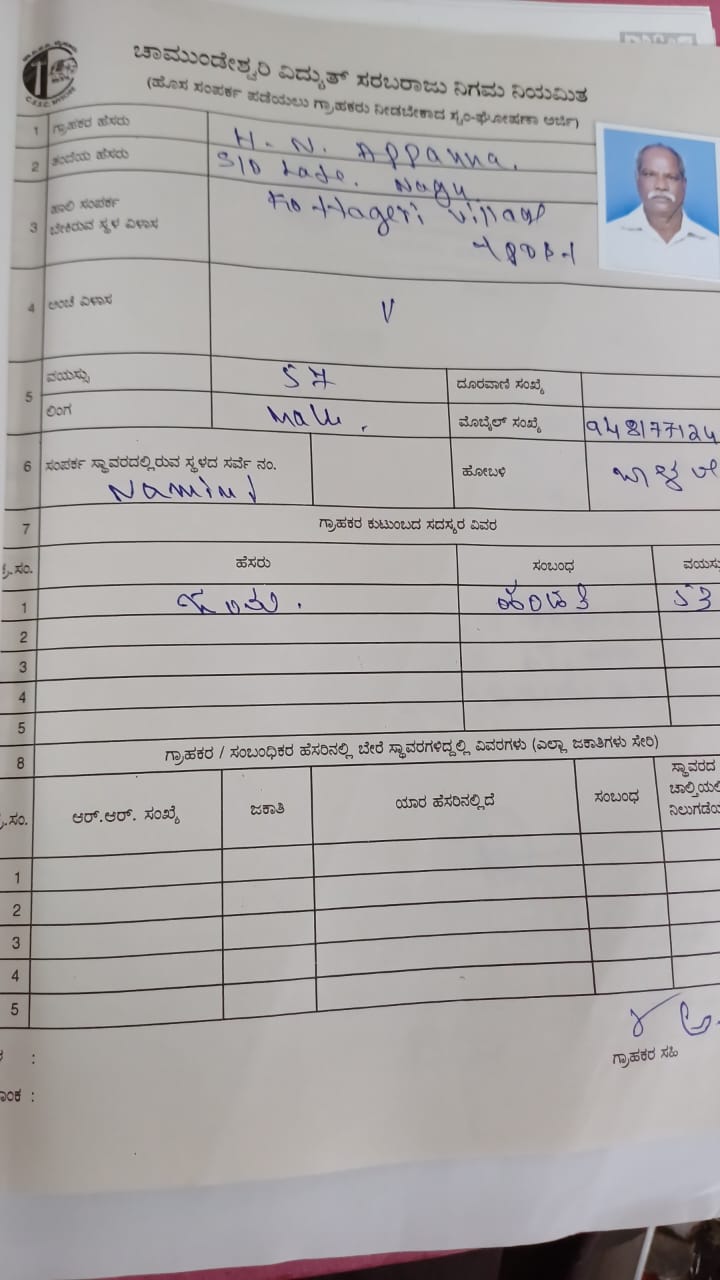 ಚಾಮುಂಡೇಶ್ವರಿ ವಿದ್ಯುತ್ ಸರಬರಾಜು ನಿಗಮ ನಿಯಮಿತ
(ಹೊಸ ಸಂಪರ್ಕ ಪಡೆಯಲು ಗ್ರಾಹಕರು ನೀಡಬೇಕಾದ ಸ್ವಂ-ಘೋಷಣಾ ಅರ್ಜಿ)
1 ಗ್ರಾಹಕರ ಹೆಸರು H. N. Appanna.
2 ತಂದೆಯ ಹೆಸರು S/o Late. Nagu
3 ಹಾಲಿ ಸಂಪರ್ಕ ಬೇಕಿರುವ ಸ್ಥಳ ವಿಳಾಸ Kottageri Village
4 ಅಂಚೆ ವಿಳಾಸ
5 ವಯಸ್ಸು 57 ದೂರವಾಣಿ ಸಂಖ್ಯೆ
ಲಿಂಗ Male. ಮೊಬೈಲ್ ಸಂಖ್ಯೆ 948177124
6 ಸಂಪರ್ಕ ಸ್ಥಾವರದಲ್ಲಿರುವ ಸ್ಥಳದ ಸರ್ವೆ ನಂ. ಹೋಬಳಿ
7 ಗ್ರಾಹಕರ ಕುಟುಂಬದ ಸದಸ್ಯರ ವಿವರ
ಕ್ರ.ಸಂ. ಹೆಸರು ಸಂಬಂಧ ವಯಸ್ಸು
1 ಹೆಂಡತಿ 53
2
3
4
5
8 ಗ್ರಾಹಕರ / ಸಂಬಂಧಿಕರ ಹೆಸರಿನಲ್ಲಿ ಬೇರೆ ಸ್ಥಾವರಗಳಿದ್ದಲ್ಲಿ ವಿವರಗಳು (ಎಲ್ಲಾ ಜಕಾತಿಗಳು ಸೇರಿ)
.ಸಂ. ಆರ್.ಆರ್. ಸಂಖ್ಯೆ ಜಕಾತಿ ಯಾರ ಹೆಸರಿನಲ್ಲಿದೆ ಸಂಬಂಧ ಸ್ಥಾವರದ
1
2
3
4
5
ಗ್ರಾಹಕರ ಸಹಿ